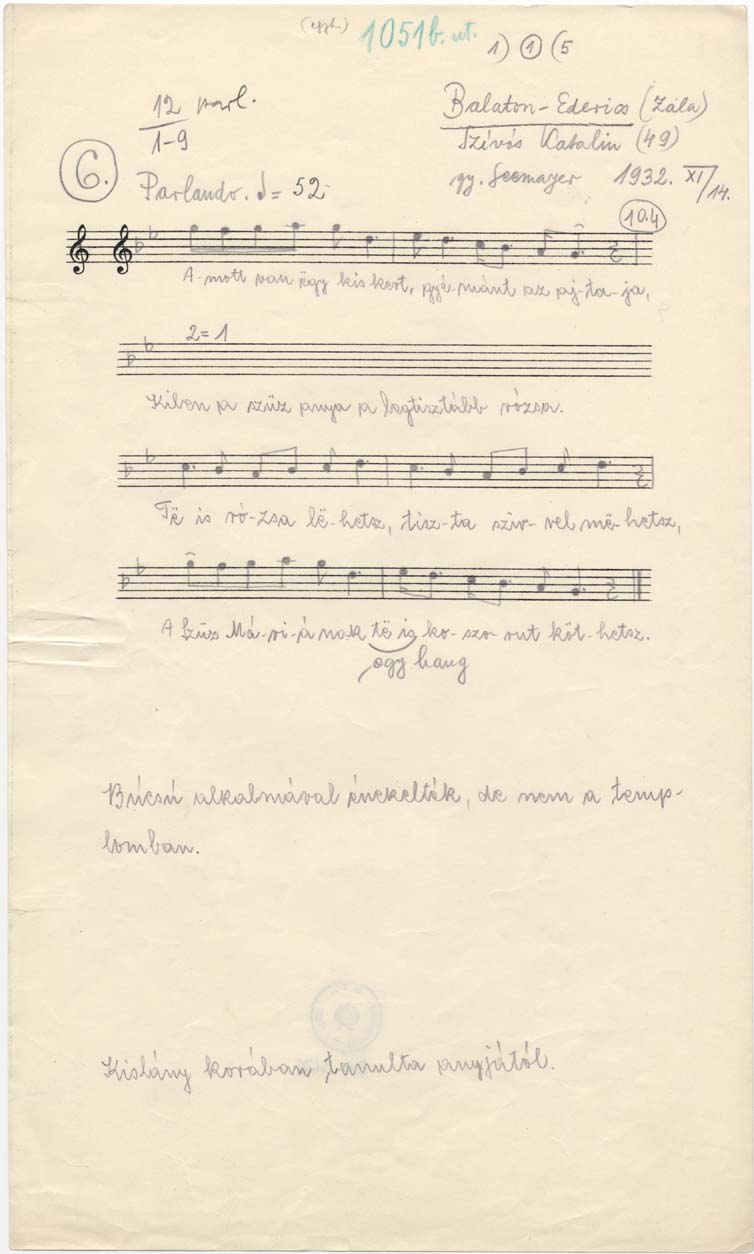 (egyh.) 1051b. ut. 1) 1 (5
12 parl.
1-9
Balaton-Ederics (Zala)
Szívós Katalin (49)
gy. Seemayer 1932. XI/14.
6.
Parlando. ♩= 52
10.4
A-mott van ëgy kis kert, gyé-mánt az aj-ta-ja,
2=1
Kiben a szüz anya a legtisztább rózsa.
Të is ró-zsa lë-hetsz, tisz-ta sziv-vel më-hetsz,
A Szüz Má-ri-á nak të is ko-szo-rut köt-hetsz.
egy hang
Búcsú alkalmával énekelték, de nem a temp-
lomban.
Kislány korában tanulta anyjától.